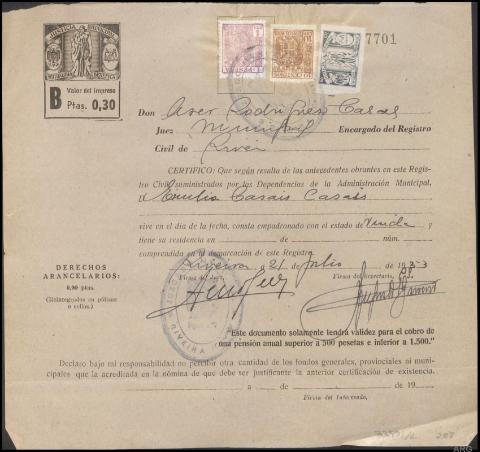 JUSTICIA MUNICIPAL
B Valor del impreso
Ptas. 0,30
7701
Don Aser Rodríguez Casas
Juez Municipal Encargado del Registro
Civil de Riveira
CERTIFICO: Que según resulta de los antecedentes obrantes en este Regis-
tro Civil suministrados por las Dependencias de la Administración Municipal,
D. Emilia Casais Casais
vive en el día de la fecha, consta empadronado con el estado de Viuda y
tiene su residencia en de núm.
comprendida en la demarcación de este Registro.
Riveira 21 de Julio de 19
DERECHOS
ARANCELARIOS:
0,90 ptas.
(Reintegrados en pólizas
o sellos.)
Firma del Juez, Firma del Secretario,
RIVEIRA
"Este documento solamente tendrá validez para el cobro de
una pensión anual superior a 500 pesetas e inferior a 1.500."
Declaro bajo mi responsabilidad no percibir otra cantidad de los fondos generales, provinciales ni muni-
cipales que la acreditada en la nómina de que debe ser justificante la anterior certificación de existencia.
a de de 19
Firma del Interesado,
ARG